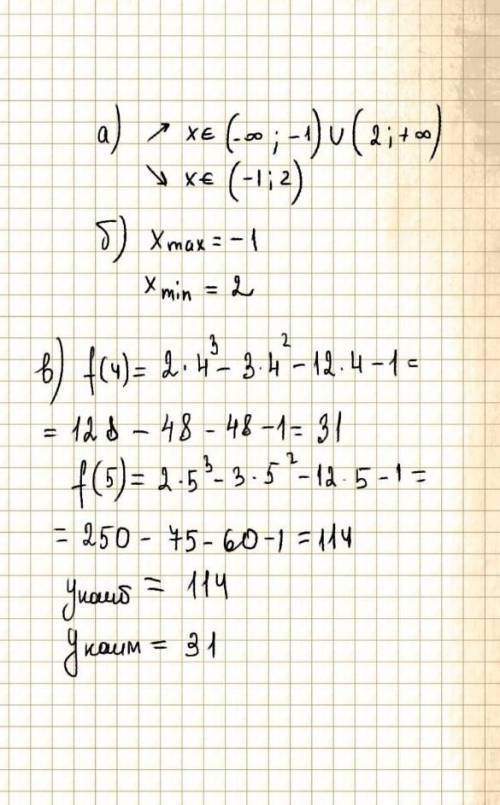 а) ↗ x∈ (-∞ ; -1) ∪ (2 ; +∞)
↘ x∈ (-1 ; 2)
б) x max = -1
x min = 2
в) f(4) = 2·4³ - 3·4² - 12·4 - 1 =
= 128 - 48 - 48 - 1 = 31
f(5) = 2·5³ - 3·5² - 12·5 - 1 =
= 250 - 75 - 60 - 1 = 114
y наиб = 114
y наим = 31